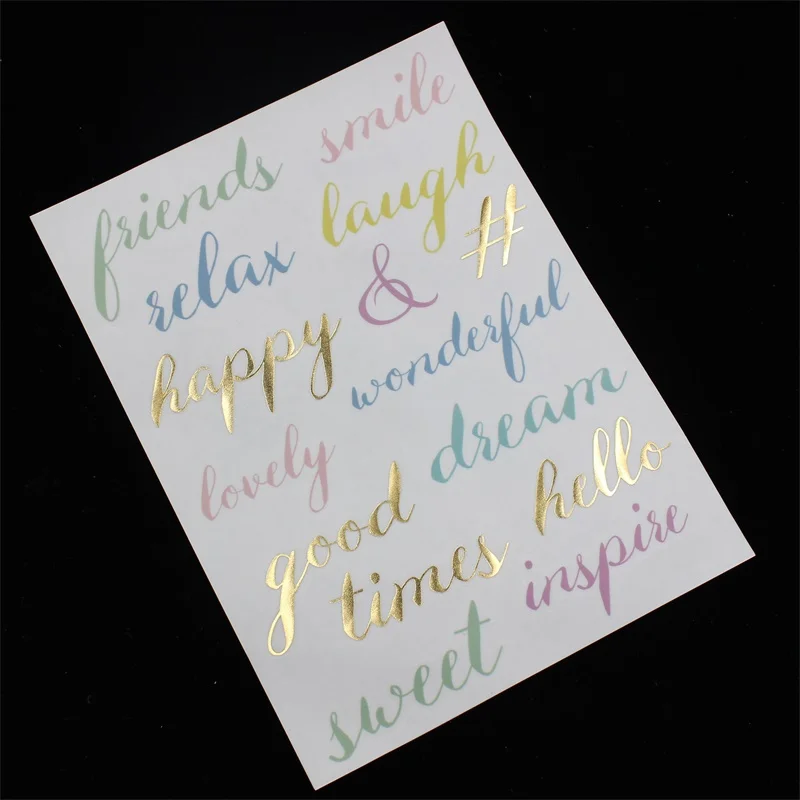 friends smile
relax laugh
happy & #
wonderful
lovely dream
good hello
times inspire
sweet